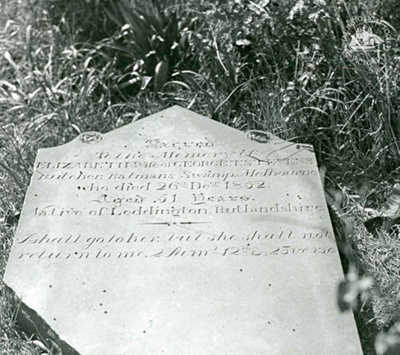 Sacred
To the Memory of
ELIZABETH Wife of GEORGE STEVENS
Butcher Batmans Swamp Melbourne
who died 26th Decr 1852
Aged 51 Years.
Native of Loddington Rutlandshire
I shall go to her, but she shall not
return to me. 2 Saml 12th C. 23 verse